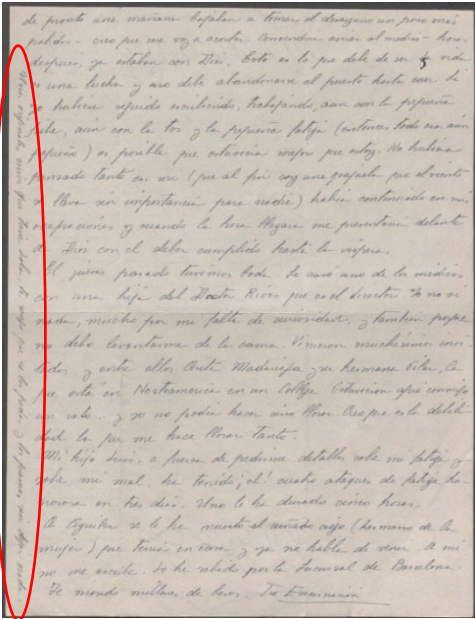 de pronto una mañana bajaban a tomar el desayuno un poco más
pálidos - creo que me voy a acostar. Convendría avisar al medico - horas
despues, ya estaban con Dios. Esto es lo que debe de ser la vida
es una lucha y uno debe abandonarse al puesto hasta caer. Si
yo hubiera seguido escribiendo, trabajando, aun con la pequeña
fiebre, aún con la tos y la pequeña fatiga (entonces todo era aún
pequeño) es posible que estuviera mejor que estoy. No hubiera
pensado tanto en mi (que al fin soy una que el viento
lleva sin importancia para nadie) habia continuado en mis
ocupaciones y cuando la hora llegara me presentaria delante
de Dios con el deber cumplido hasta la vispera.
El jueves pasado tuvimos boda. Se casó uno de los medicos
con una hija del Doctor Rivas que es el director. Yo no vi
nada, mucho por mi falta de curiosidad y tambien porque
no debo levantarme de la cama. Vinieron muchisimos invi-
tados y entre ellos Madariaga y su hermana Pilar, la
que está en Norteamerica en un College. Estuvieron aqui conmigo
un rato... y yo no podia hacer sino llorar. Creo que es la debili-
dad la que me hace llorar tanto.
Mi hijo Luis, a fuerza de pedirme detalles sobre mi fatiga y
sobre mi mal, ha tenido ¡él! cuatro ataques de fatiga ho-
rrorosa en tres dias. Uno le ha durado cinco horas.
A se le ha muerto el cuñado viejo (hermano de la
mujer) que tenia en casa y ya no habla de venir. A mi
no me escribe. Lo he sabido por la Sucursal de Barcelona
Te mando millares de besos. Tu Encarnación